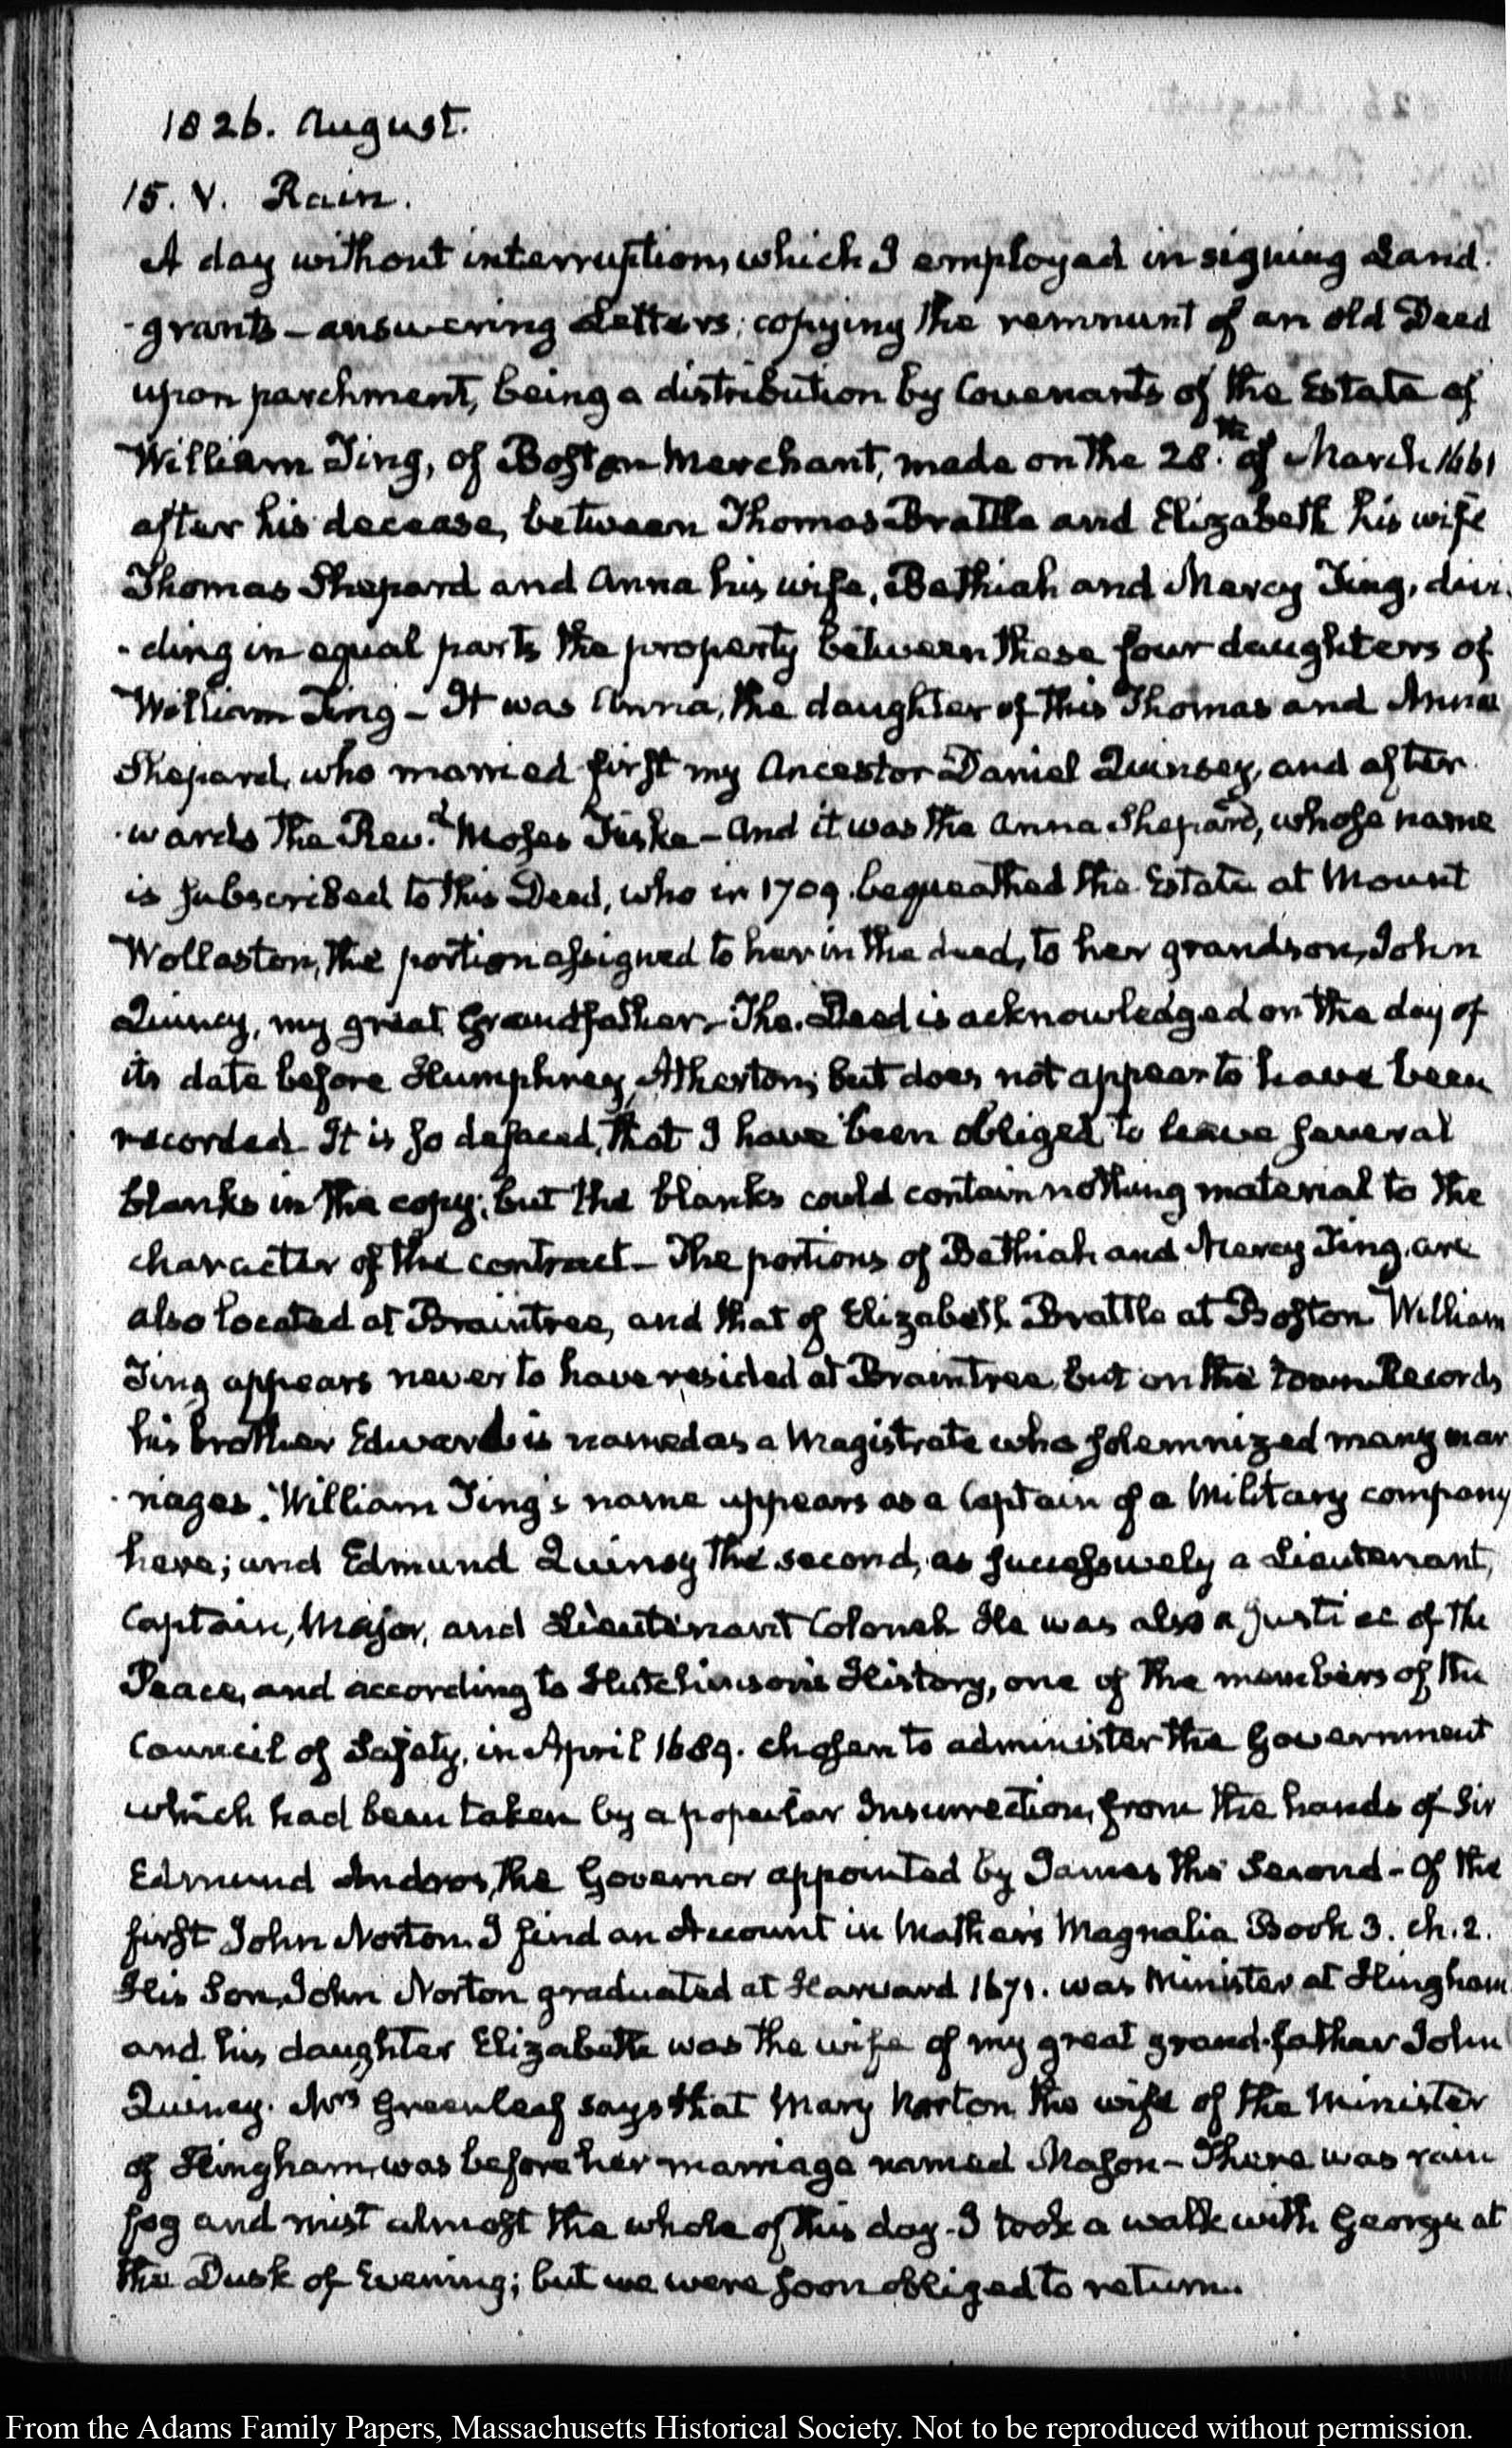 1826. August.
15. V. Rain.
A day without interruption, which I employed in signing Land
-grants - answering Letters; copying the remnant of an old Deed
upon parchment, being a distribution by Covenants of the Estate of
William Ting, of Boston Merchant, made on the 28.th of March 1661
after his decease, between Thomas Brattle and Elizabeth his wife
Thomas Shepard and Anna his wife, Bethiah and Mercy Ting, divi
-ding in equal parts the property between these four daughters of
William Ting - It was Anna, the daughter of this Thomas and Anna
Shepard, who married first my Ancestor Daniel Quinsey, and after
-wards the Rev.d Moses Fiske - And it was the Anna Shepard, whose name
is subscribed to this Deed, who in 1709 bequeathed the Estate at Mount
Wollaston, the portion assigned to her in the deed, to her grandson, John
Quincy, my great Grandfather - The Deed is acknowledged on the day of
its date before Humphrey Atherton; but does not appear to have been
recorded. It is so defaced, that I have been obliged to leave several
blanks in the copy; but the blanks could contain nothing material to the
character of the contract - The portions of Bethiah and Mercy Ting are
also located at Braintree, and that of Elizabeth Brattle at Boston. William
Ting appears never to have resided at Braintree, but on the town Records
his brother Edward is named as a Magistrate who solemnized many mar
-riages. William Ting's name appears as a Captain of a Military company
here; and Edmund Quinsy the second, as successively a Lieutenant,
Captain, Major, and Lieutenant Colonel. He was also a Justice of the
Peace, and according to Hutchinson's History, one of the members of the
Council of Safety, in April 1689. chosen to administer the Government
which had been taken by a popular Insurrection, from the hands of Sir
Edmund Andros, the Governor appointed by James the Second - Of the
first John Norton I find an Account in Mather's Magnalia Book 3. ch. 2.
His Son, John Norton graduated at Harvard 1671. was Minister at Hingham
and his daughter Elizabeth was the wife of my great grand-father John
Quincy. Mrs Greenleaf says that Mary Norton the wife of the Minister
of Hingham, was before her marriage named Mason - There was rain
fog and mist almost the whole of this day - I took a walk with George at
the Dusk of Evening; but we were soon obliged to return.
From the Adams Family Papers, Massachusetts Historical Society. Not to be reproduced without permission.